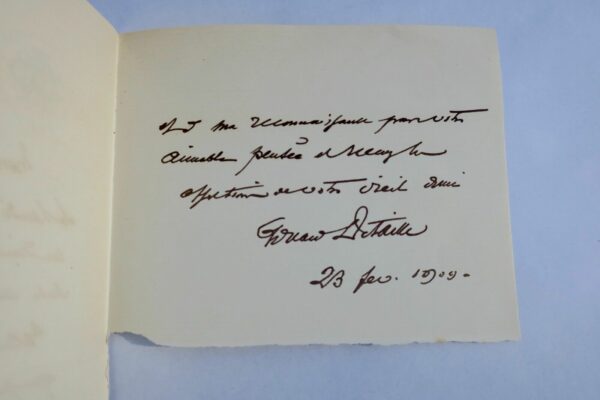 ma reconnaissance pour votre
aimable pensée et
affection de votre vieil ami
Edouard Detaille
23 fev. 1909.